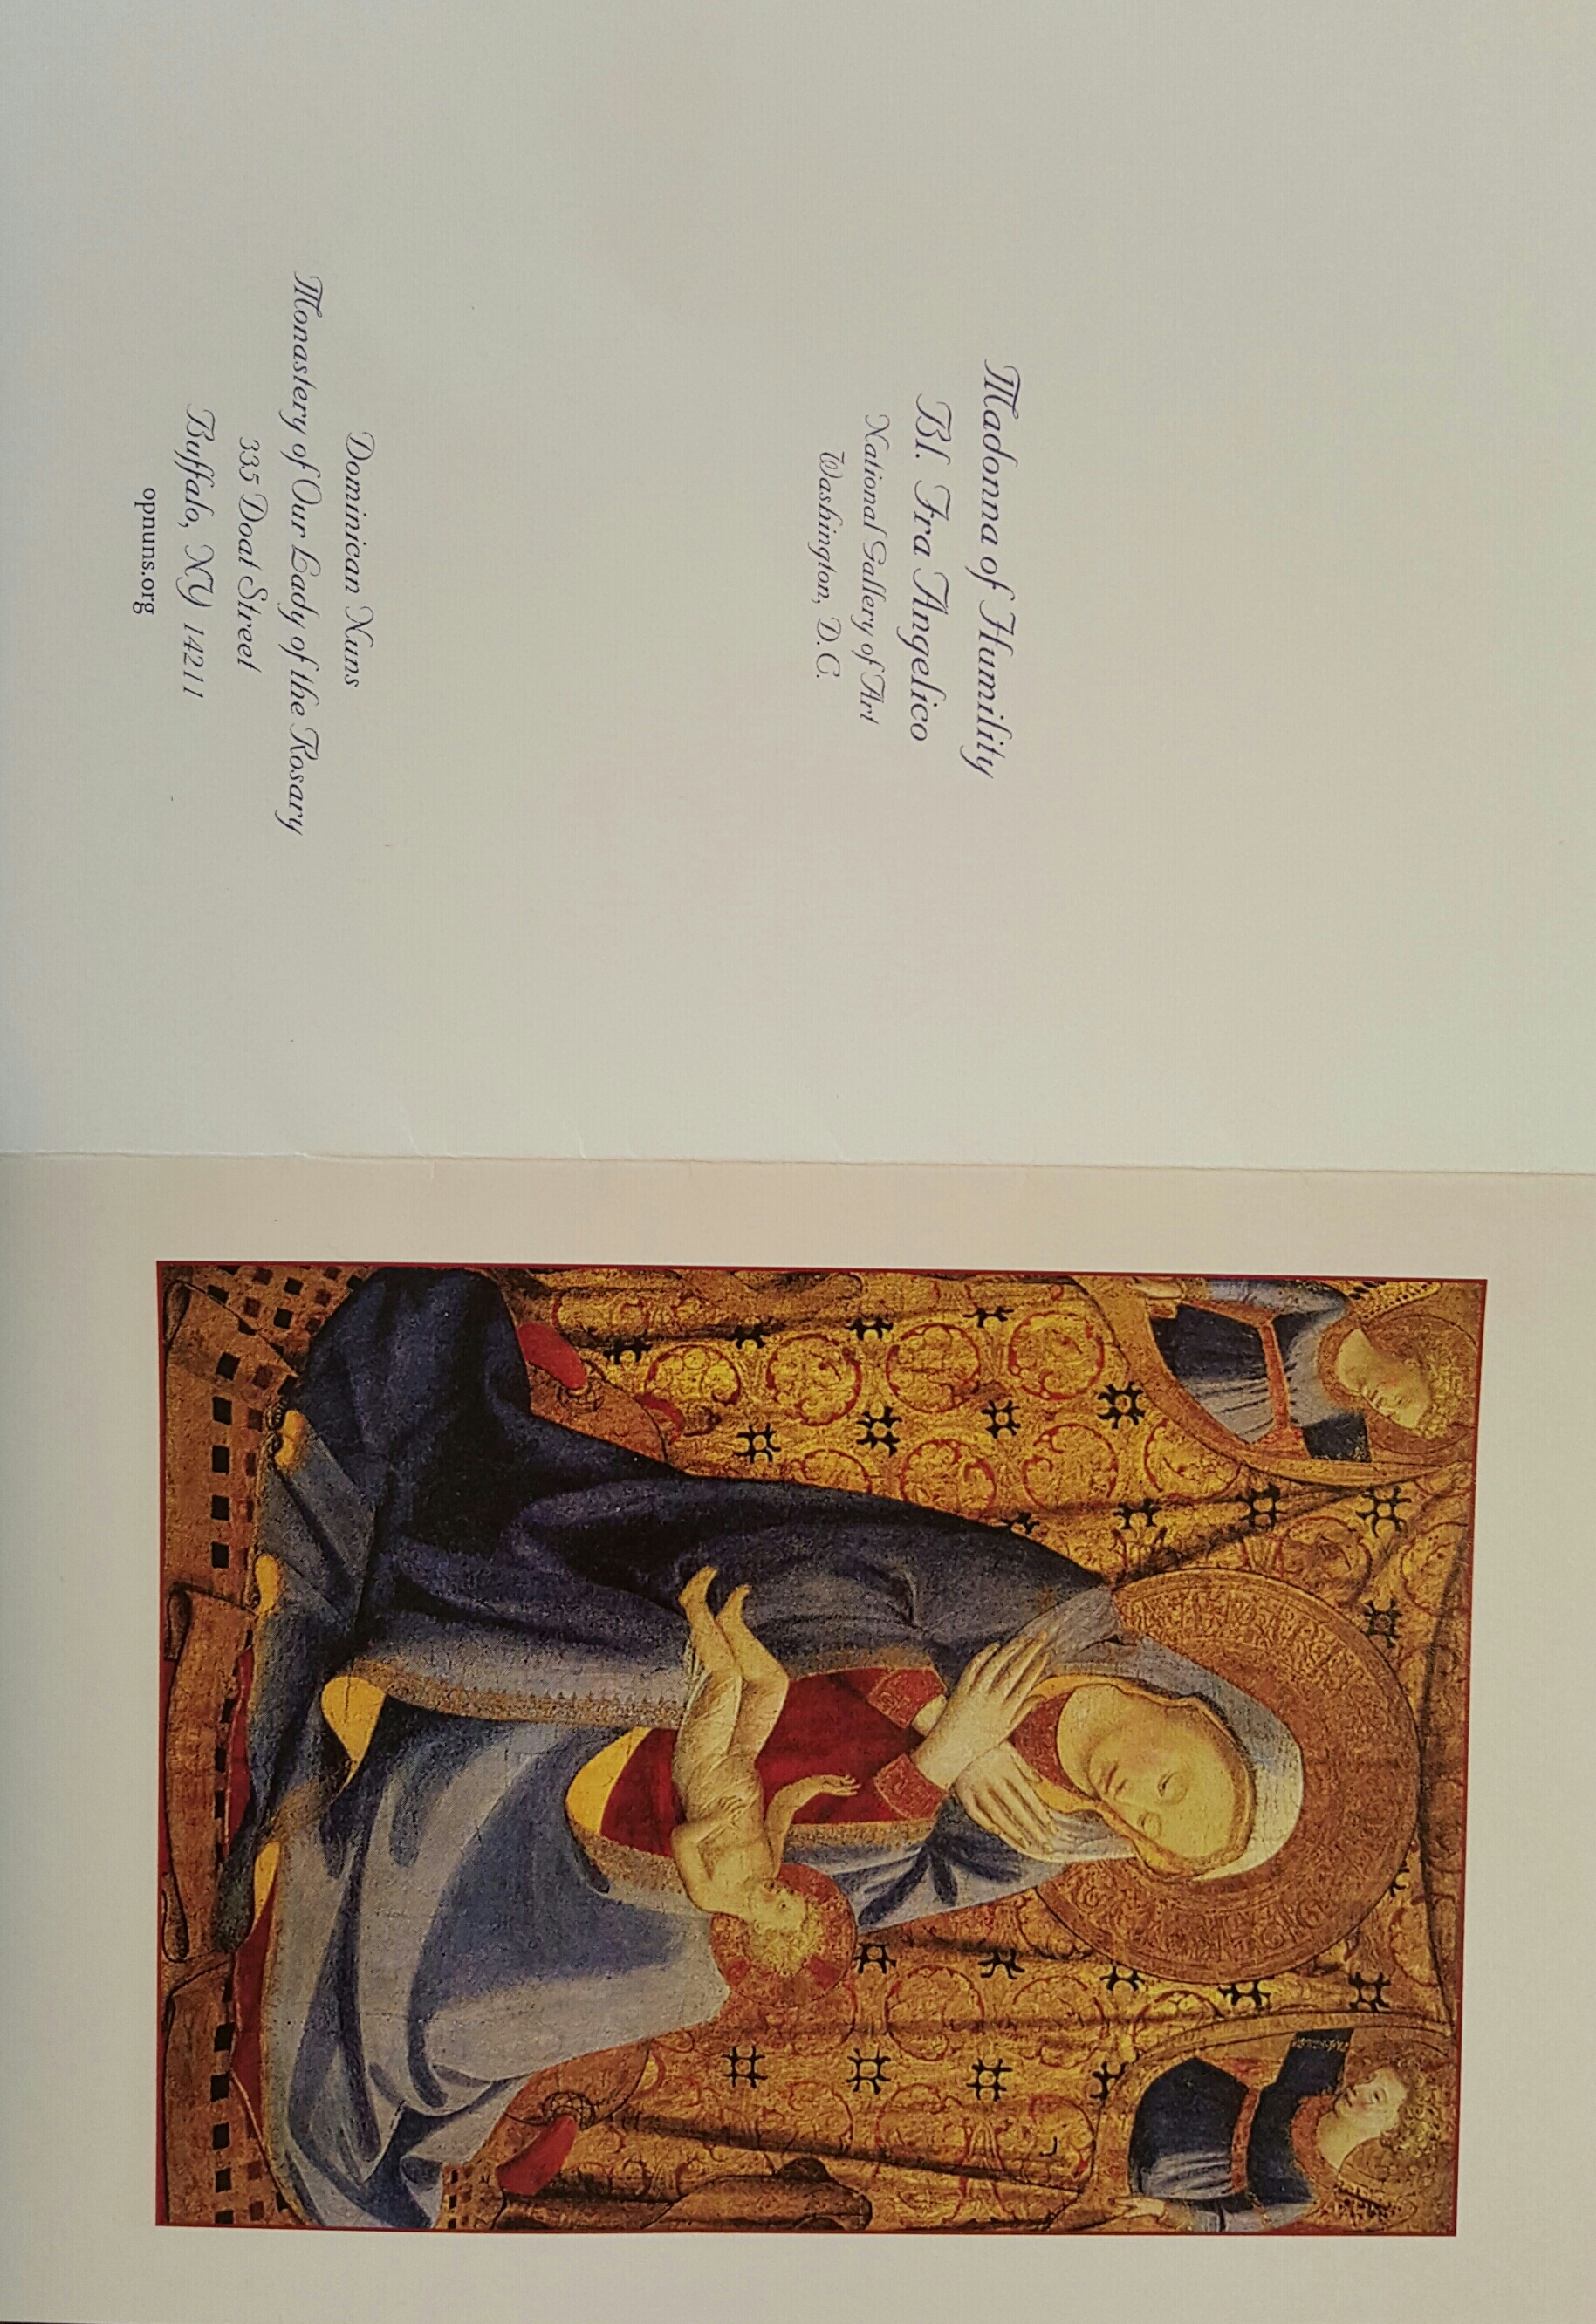 Madonna of Humility
Bl. Fra Angelico
National Gallery of Art
Washington, D.C.
Dominican Nuns
Monastery of Our Lady of the Rosary
335 Doat Street
Buffalo, NY 14211
opnuns.org